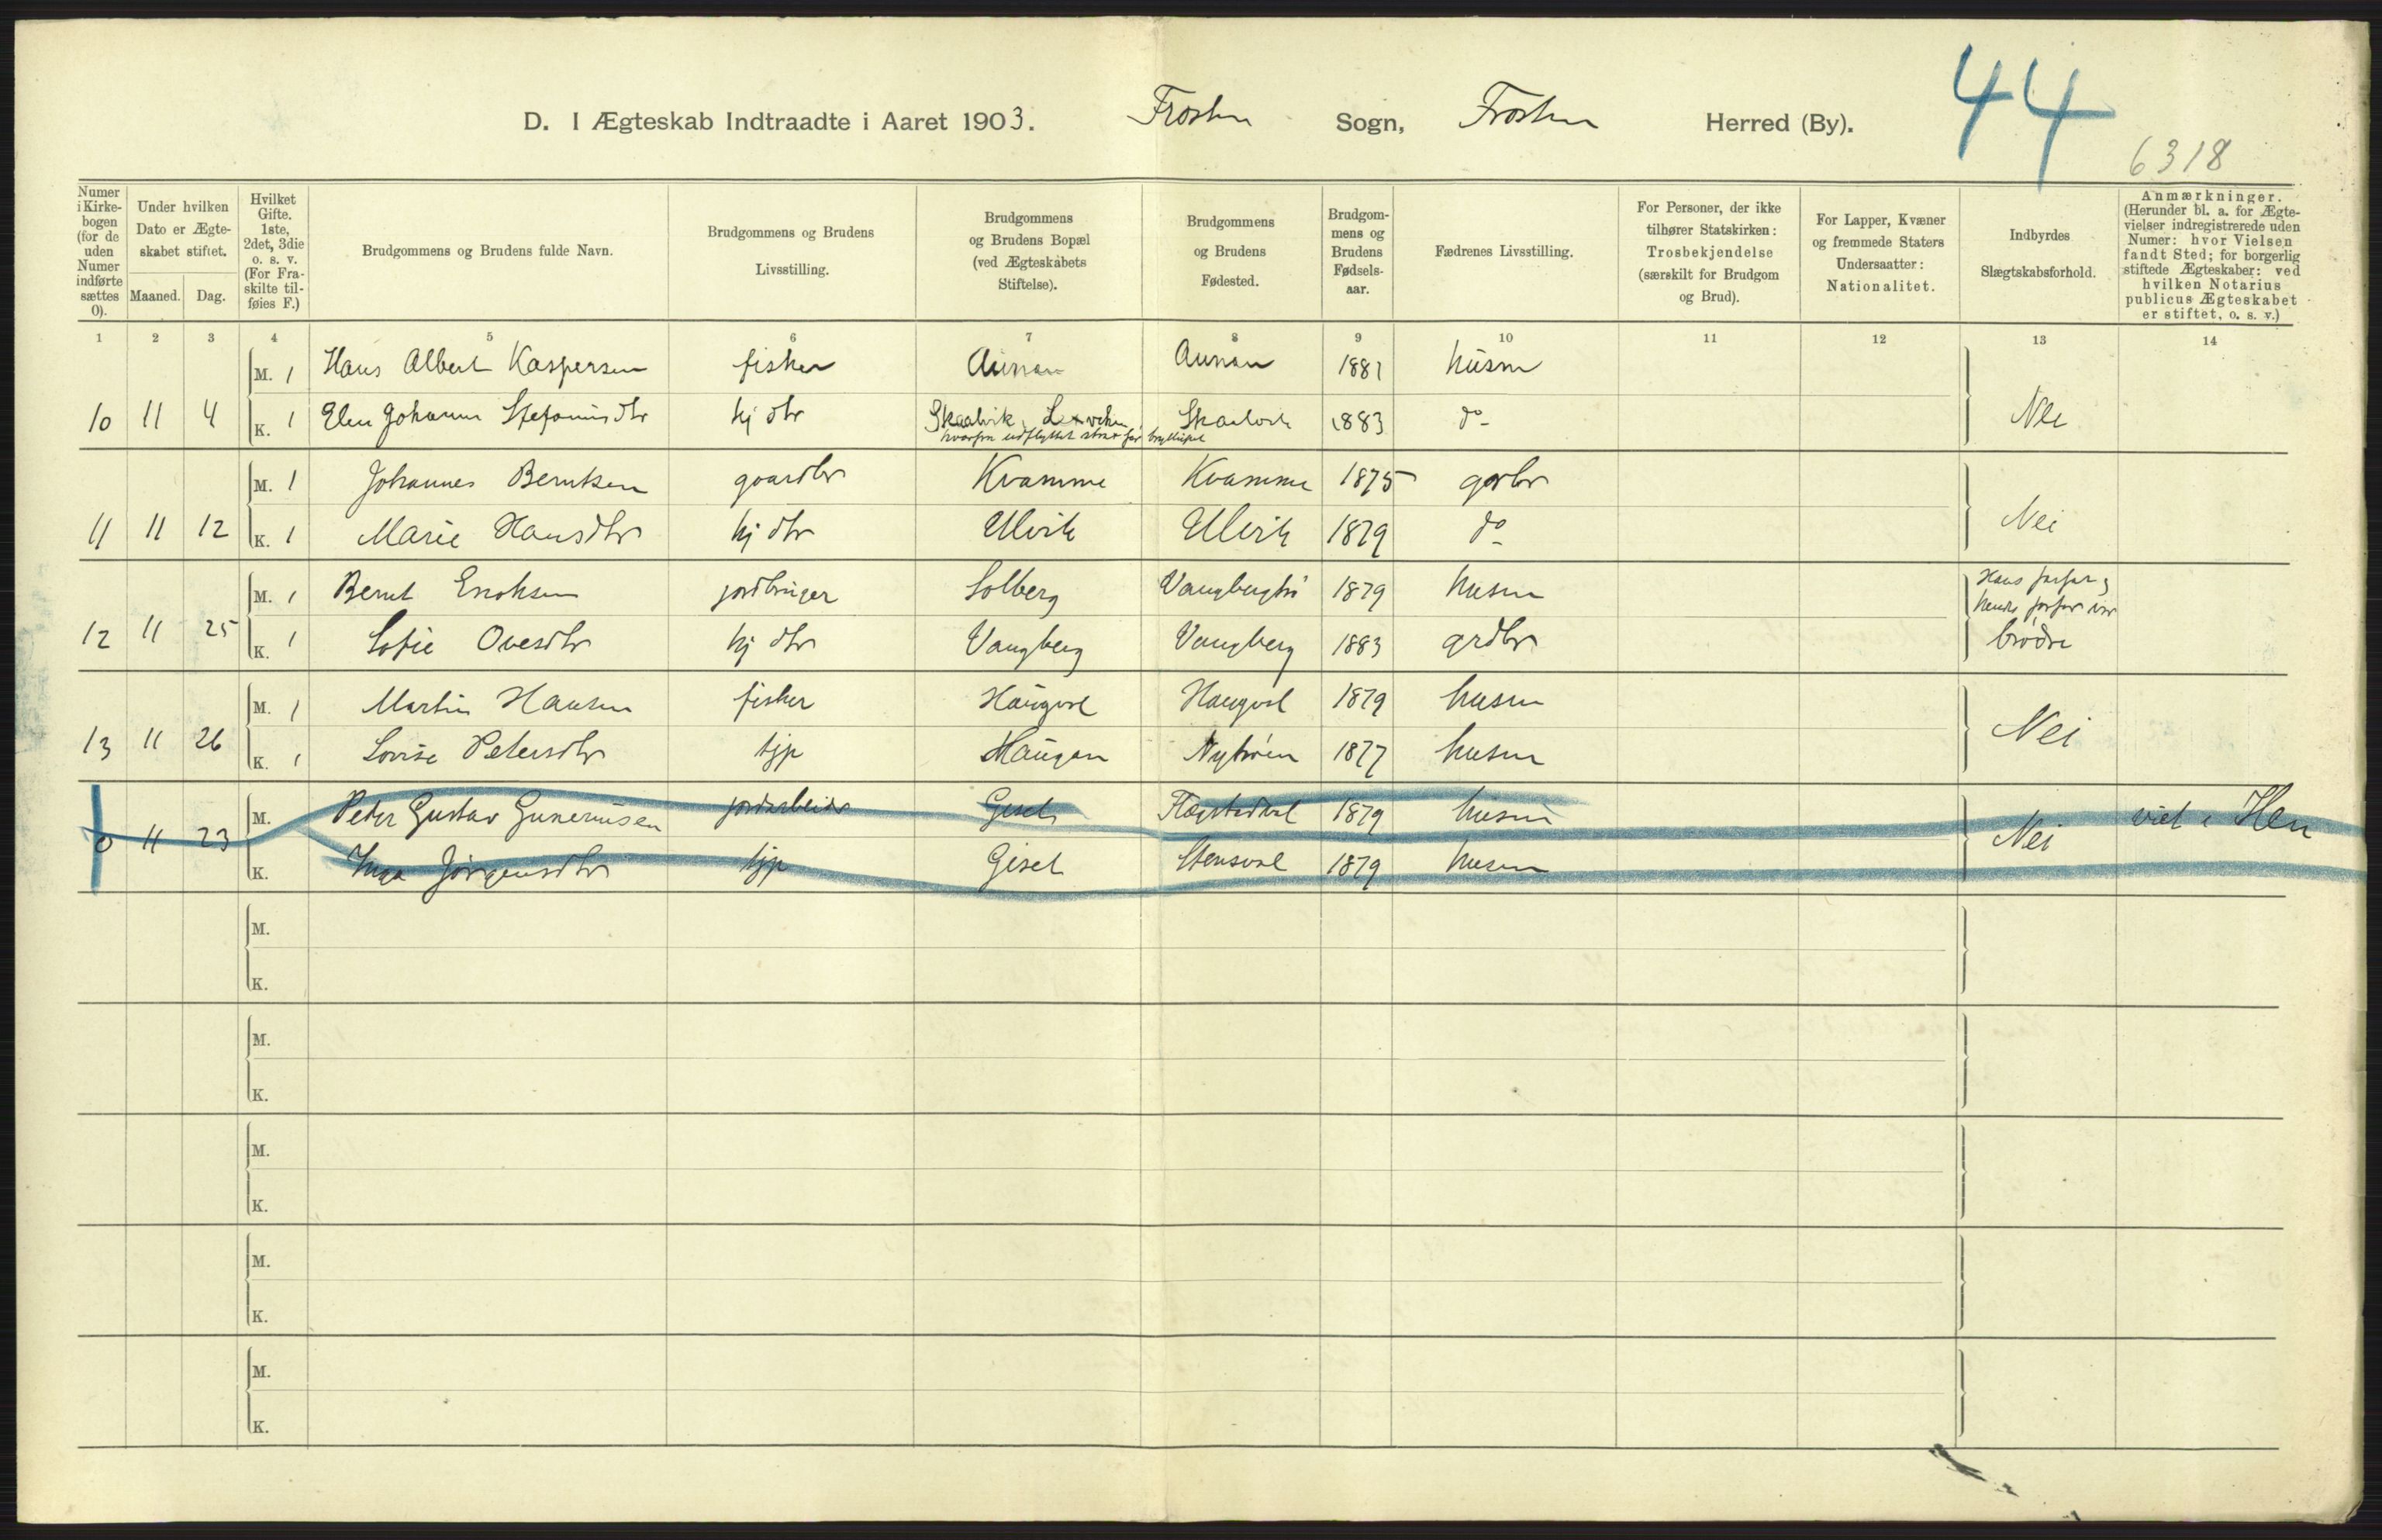 44
D. I Ægteskab Indtraadte i Aaret 1903. Frosten Sogn, Frosten Herred (By).
6318
Numer i Kirkebogen (for de uden Numer indførte sættes 0).
Under hvilken Dato er Ægteskabet stiftet.
Maaned. Dag.
Hvilket Gifte. 1ste, 2det, 3die o. s. v. (For Fraskilte tilføies F.)
Brudgommens og Brudens fulde Navn.
Brudgommens og Brudens Livsstilling.
Brudgommens og Brudens Bopæl (ved Ægteskabets Stiftelse).
Brudgommens og Brudens Fødested.
Brudgommens og Brudens Fødselsaar.
Fædrenes Livsstilling.
For Personer, der ikke tilhører Statskirken: Trosbekjendelse (særskilt for Brudgom og Brud).
For Lapper, Kvæner og fremmede Staters Undersaatter: Nationalitet.
Indbyrdes Slægtskabsforhold.
Anmærkninger. (Herunder bl. a. for Ægtevielser indregistrerede uden Numer: hvor Vielsen fandt Sted; for borgerlig stiftede Ægteskaber: ved hvilken Notarius publicus Ægteskabet er stiftet, o. s. v.)
1 2 3 4 5 6 7 8 9 10 11 12 13 14
M. 1 Hans Albert Kaspersen fisker Aunan Aunan 1881 husm
10 11 4 K. 1 Elen Johanna Stefanusdtr hj dtr Skaalvik Skaalvik 1883 do Nei
hvorfra udflyttet strax før bryllupet
M. 1 Johannes Berntsen gaardbr Kvamme Kvamme 1875 garbr
11 11 12 K. 1 Marie Hansdtr hj dtr Ulvik Ulvik 1879 do Nei
M. 1 Bernt Enoksen jordbruger Solberg 1879 husm Hans farfar og
hendes farfar var
12 11 25 K. 1 Sofie Ovesdtr hj dtr Vangberg Vangberg 1883 grdbr brødre
M. 1 Martin Hansen fisker Haugvol Haugvol 1879 husm
13 11 26 K. 1 Lovise Petersdtr tjp Haugan Nybroen 1877 husm Nei
M. Peter Gustav Guneriusen jordarbeider Gisel 1879 husm viet i Hen
0 11 23 K. Inga Jörgensdtr tjp Gisel Stensvol 1879 husm Nei
M.
K.
M.
K.
M.
K.
M.
K.
M.
K.